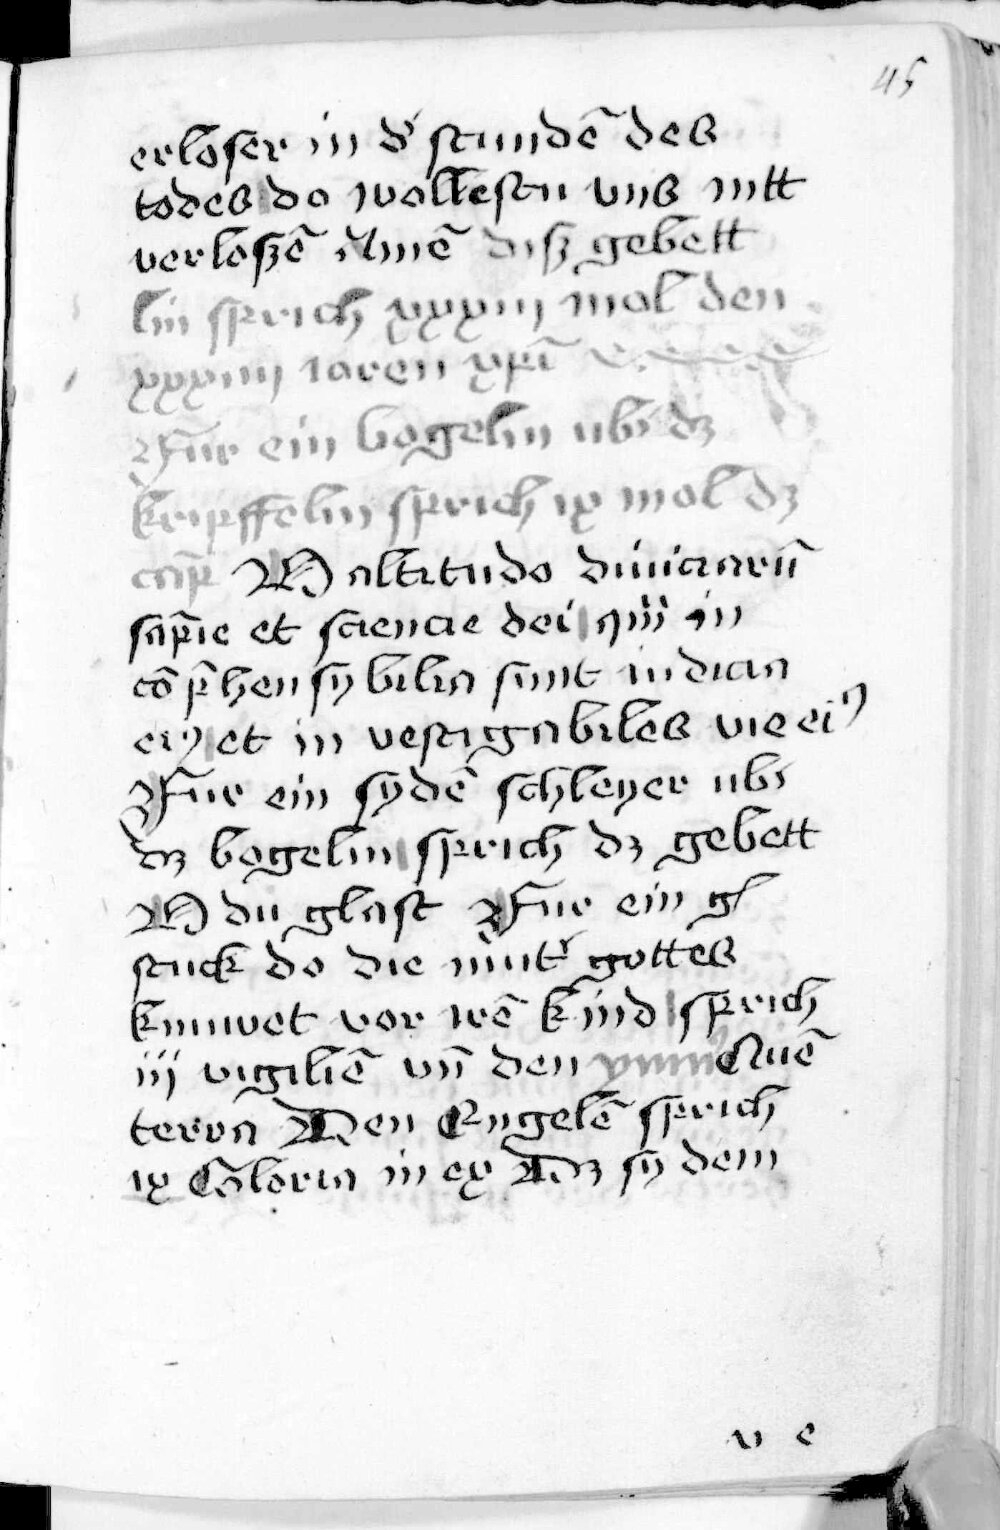 45
erloser in d' stundē des
todes do wollestu vns nitt
verloszē Amē disz gebett
lin sprich xxxiij mol den
xxxiiij iaren xpī
Fur ein bogelin ub' dz
kripffelin sprich ix mol dz
cap̄ O altitudo diuiciarū
sap̄ie et sciencie dei qm̄ in
cō p̄hensybilia sunt iudicia
eiꝰ et in vestigabiles vie eiꝰ
Fur ein sydē schleyer ub'
dz bogelin sprich dz gebett
O du glast Fur ein gl
stuck do die mut' gottes
knuwet vor irē kind sprich
iij vigiliē vn̄ den ymnū Quē
terra Den Engelē sprich
ix Gloria in ex Dz sy dem
v e